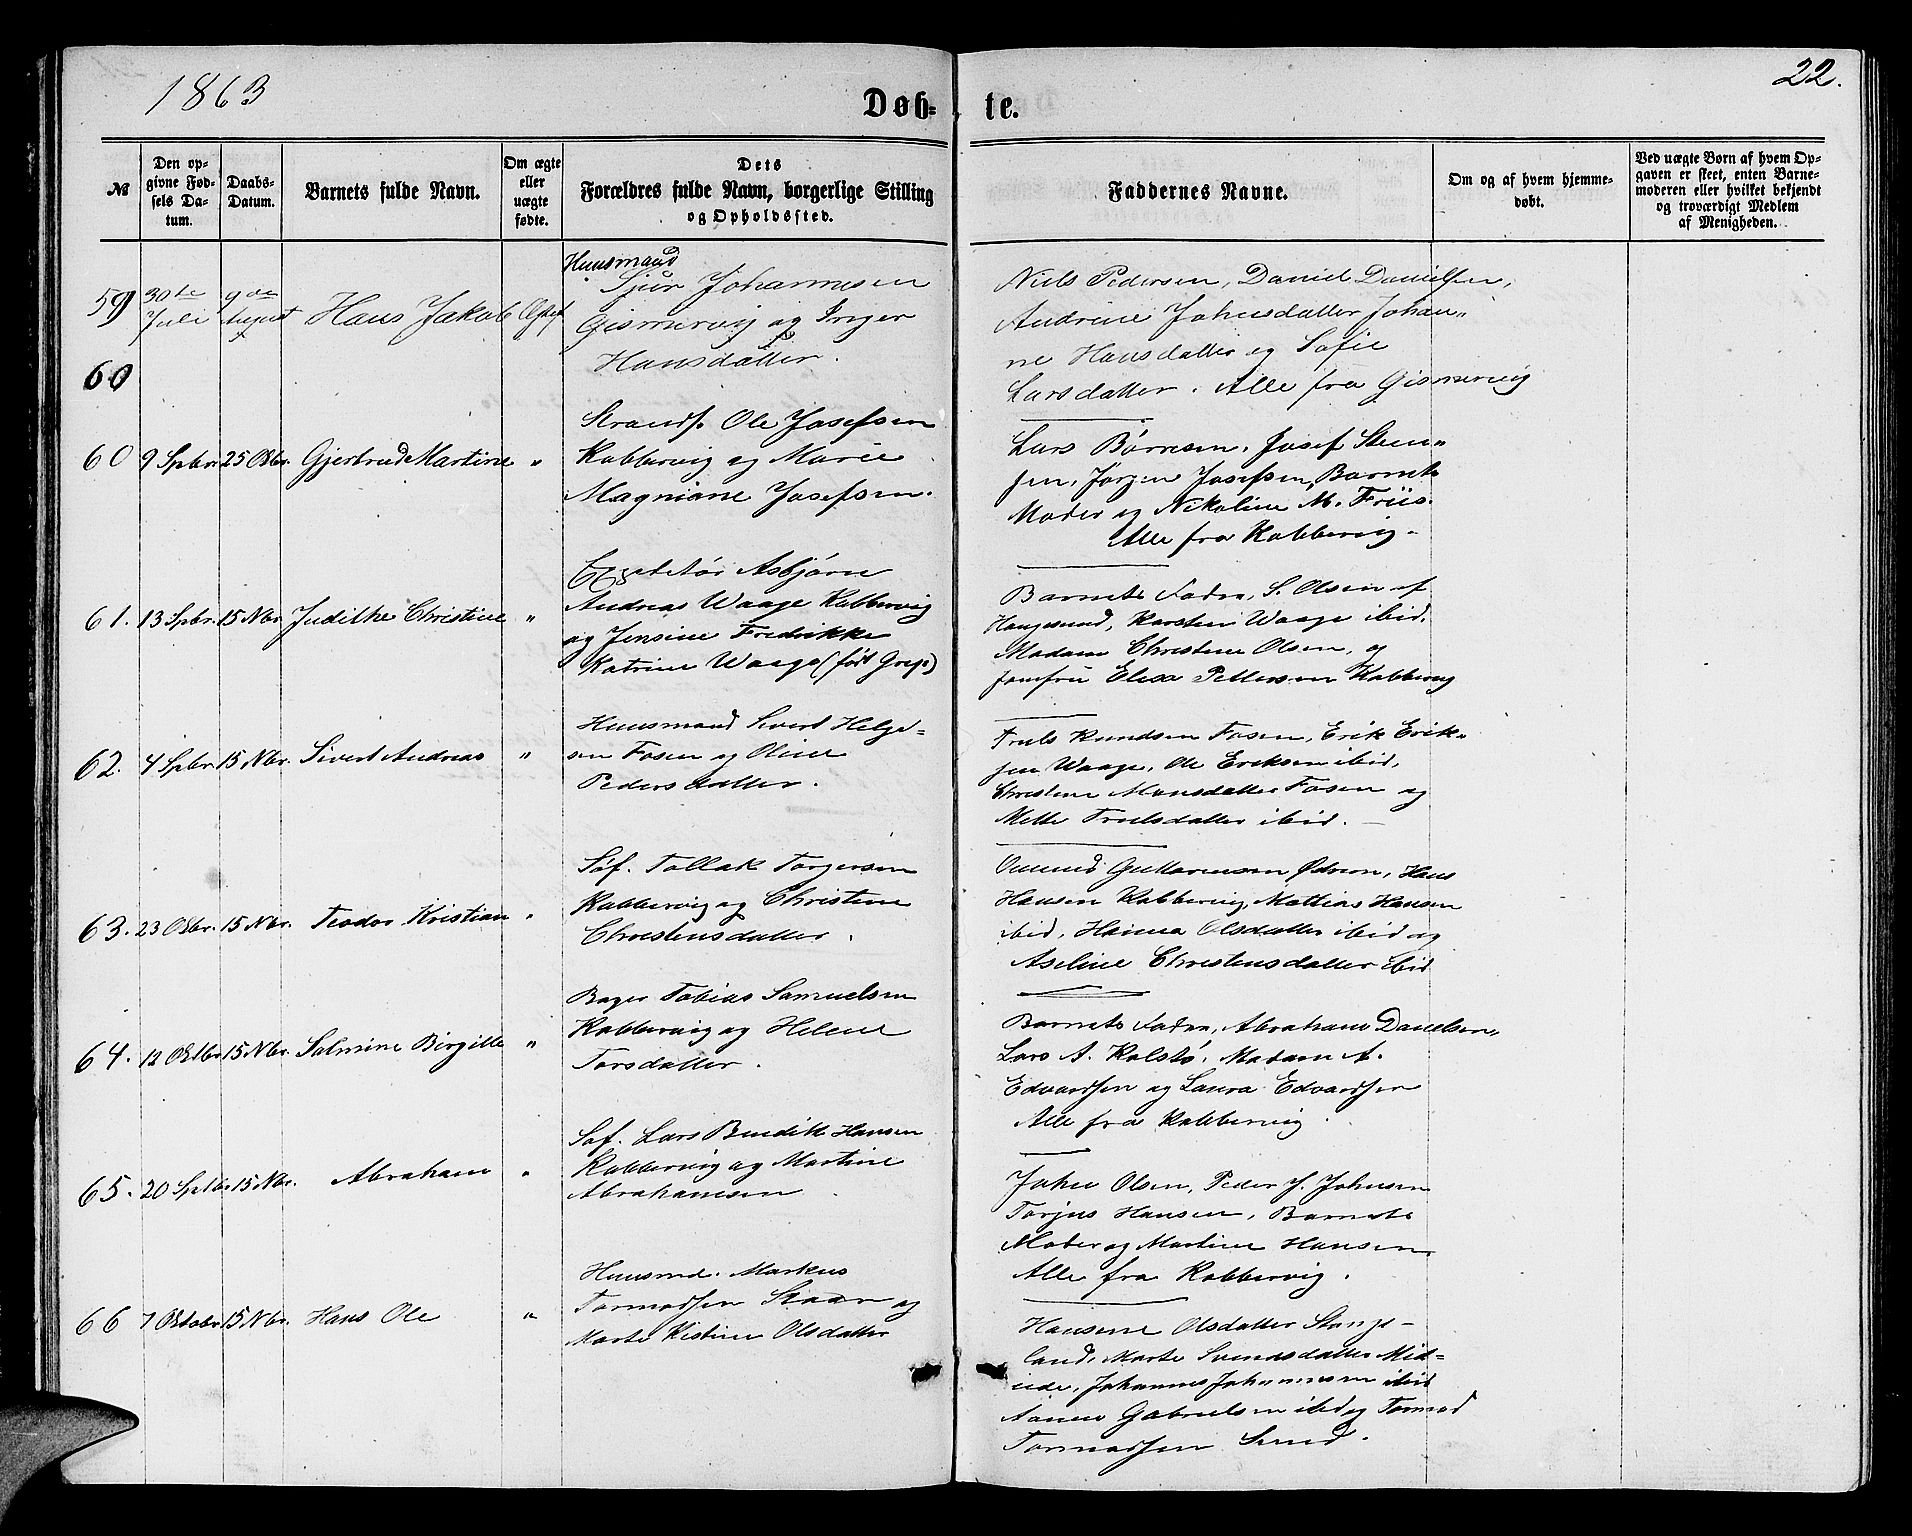 1863
22.
Døb- te.
№
Den opgivne Fødsels Datum.
Daabs-Datum.
Barnets fulde Navn.
Om ægte eller uægte fødte.
Dets Forældres fulde Navn, borgerlige Stilling og Opholdssted.
Faddernes Navne.
Om og af hvem hjemmedøbt.
Ved uægte Børn af hvem Opgaven er skeet, enten Barnemoderen eller hvilket bekjendt og troværdigt Medlem af Menigheden.
59 30te Juli 9de August Hans Jakob Ægtef
Huusmand
Sjur Johannesen
Gismervig og Inger
Hansdatter.
Niels Pedersen, Daniel Danielsen,
Andrine Johnsdatter Johan-
ne Hansdatter og Sofie
Larsdatter. Alle fra Gismervig
60
60 9 Spbr. 25 Oktbr. Gjertrud Martine "
Strands. Ole Josefsen
Kobbervig og Marie
Magniane Josefsen.
Lars Børresen, Josef Steen-
sen, Jørgen Josefsen, Barnets
Moder og Nikoline M. Friis.
Alle fra Kobbervig.
61. 13 Spbr. 15 Nbr. Judithe Christine "
Expeditør Asbjørn
Andreas Waage Kobbervig
og Jensine Fredrikke
Katrine Waage (født Greps)
Barnets Fader, S. Olsen af
Haugesund, Karsten Waage ibid.
Madam Christine Olsen, og
Jomfru Elisa Pettersen Kobbervig
62. 4 Spbr. 15 Nbr. Sivert Andreas "
Huusmand Sivert Helge-
sen Fosen og Oline
Pedersdatter.
Truls Knudsen Fosen, Erik Erik-
sen Waage, Ole Eriksen ibid,
Christine Monsdatter Fosen og
Mette Trulsdatter ibid.
63. 23 Oktbr. 15 Nbr. Teodor Kristian "
Søf. Tollak Torgersen
Kobbervig og Christine
Christensdatter.
Omund Guttormsen Østrem, Hans
Hansen Kobbervig, Mathias Hansen
ibid, Hanna Olsdatter ibid og
Aseline Christensdatter ibid
64. 12 Oktbr. 15 Nbr. Salmine Birgitte "
Bager Tobias Samuelsen
Kobbervig og Helene
Torsdatter.
Barnets Fader, Abraham Danielsen,
Lars A. Kolstø, Madam A.
Edvardsen og Laura Edvardsen
Alle fra Kobbervig.
65. 20 Sptbr. 15 Nbr. Abraham "
Søf. Lars Bendik Hansen
Kobbervig og Martine
Abrahamsen
John Olsen, Peder J. Johnsen
Torjus Hansen, Barnets
Moder og Martine Hansen.
Alle fra Kobbervig.
66 7 Oktobr. 15 Nbr. Hans Ole "
Huusmd. Markus
Tormodsen Skaar og
Marte Kistine Olsdatter
Hansene Olsdatter Stangs-
land, Marte Svendsdatter Mid-
, Johannes Johannesen ibid
Gabrielsen ibid og Tormod
Tormodsen Sund.